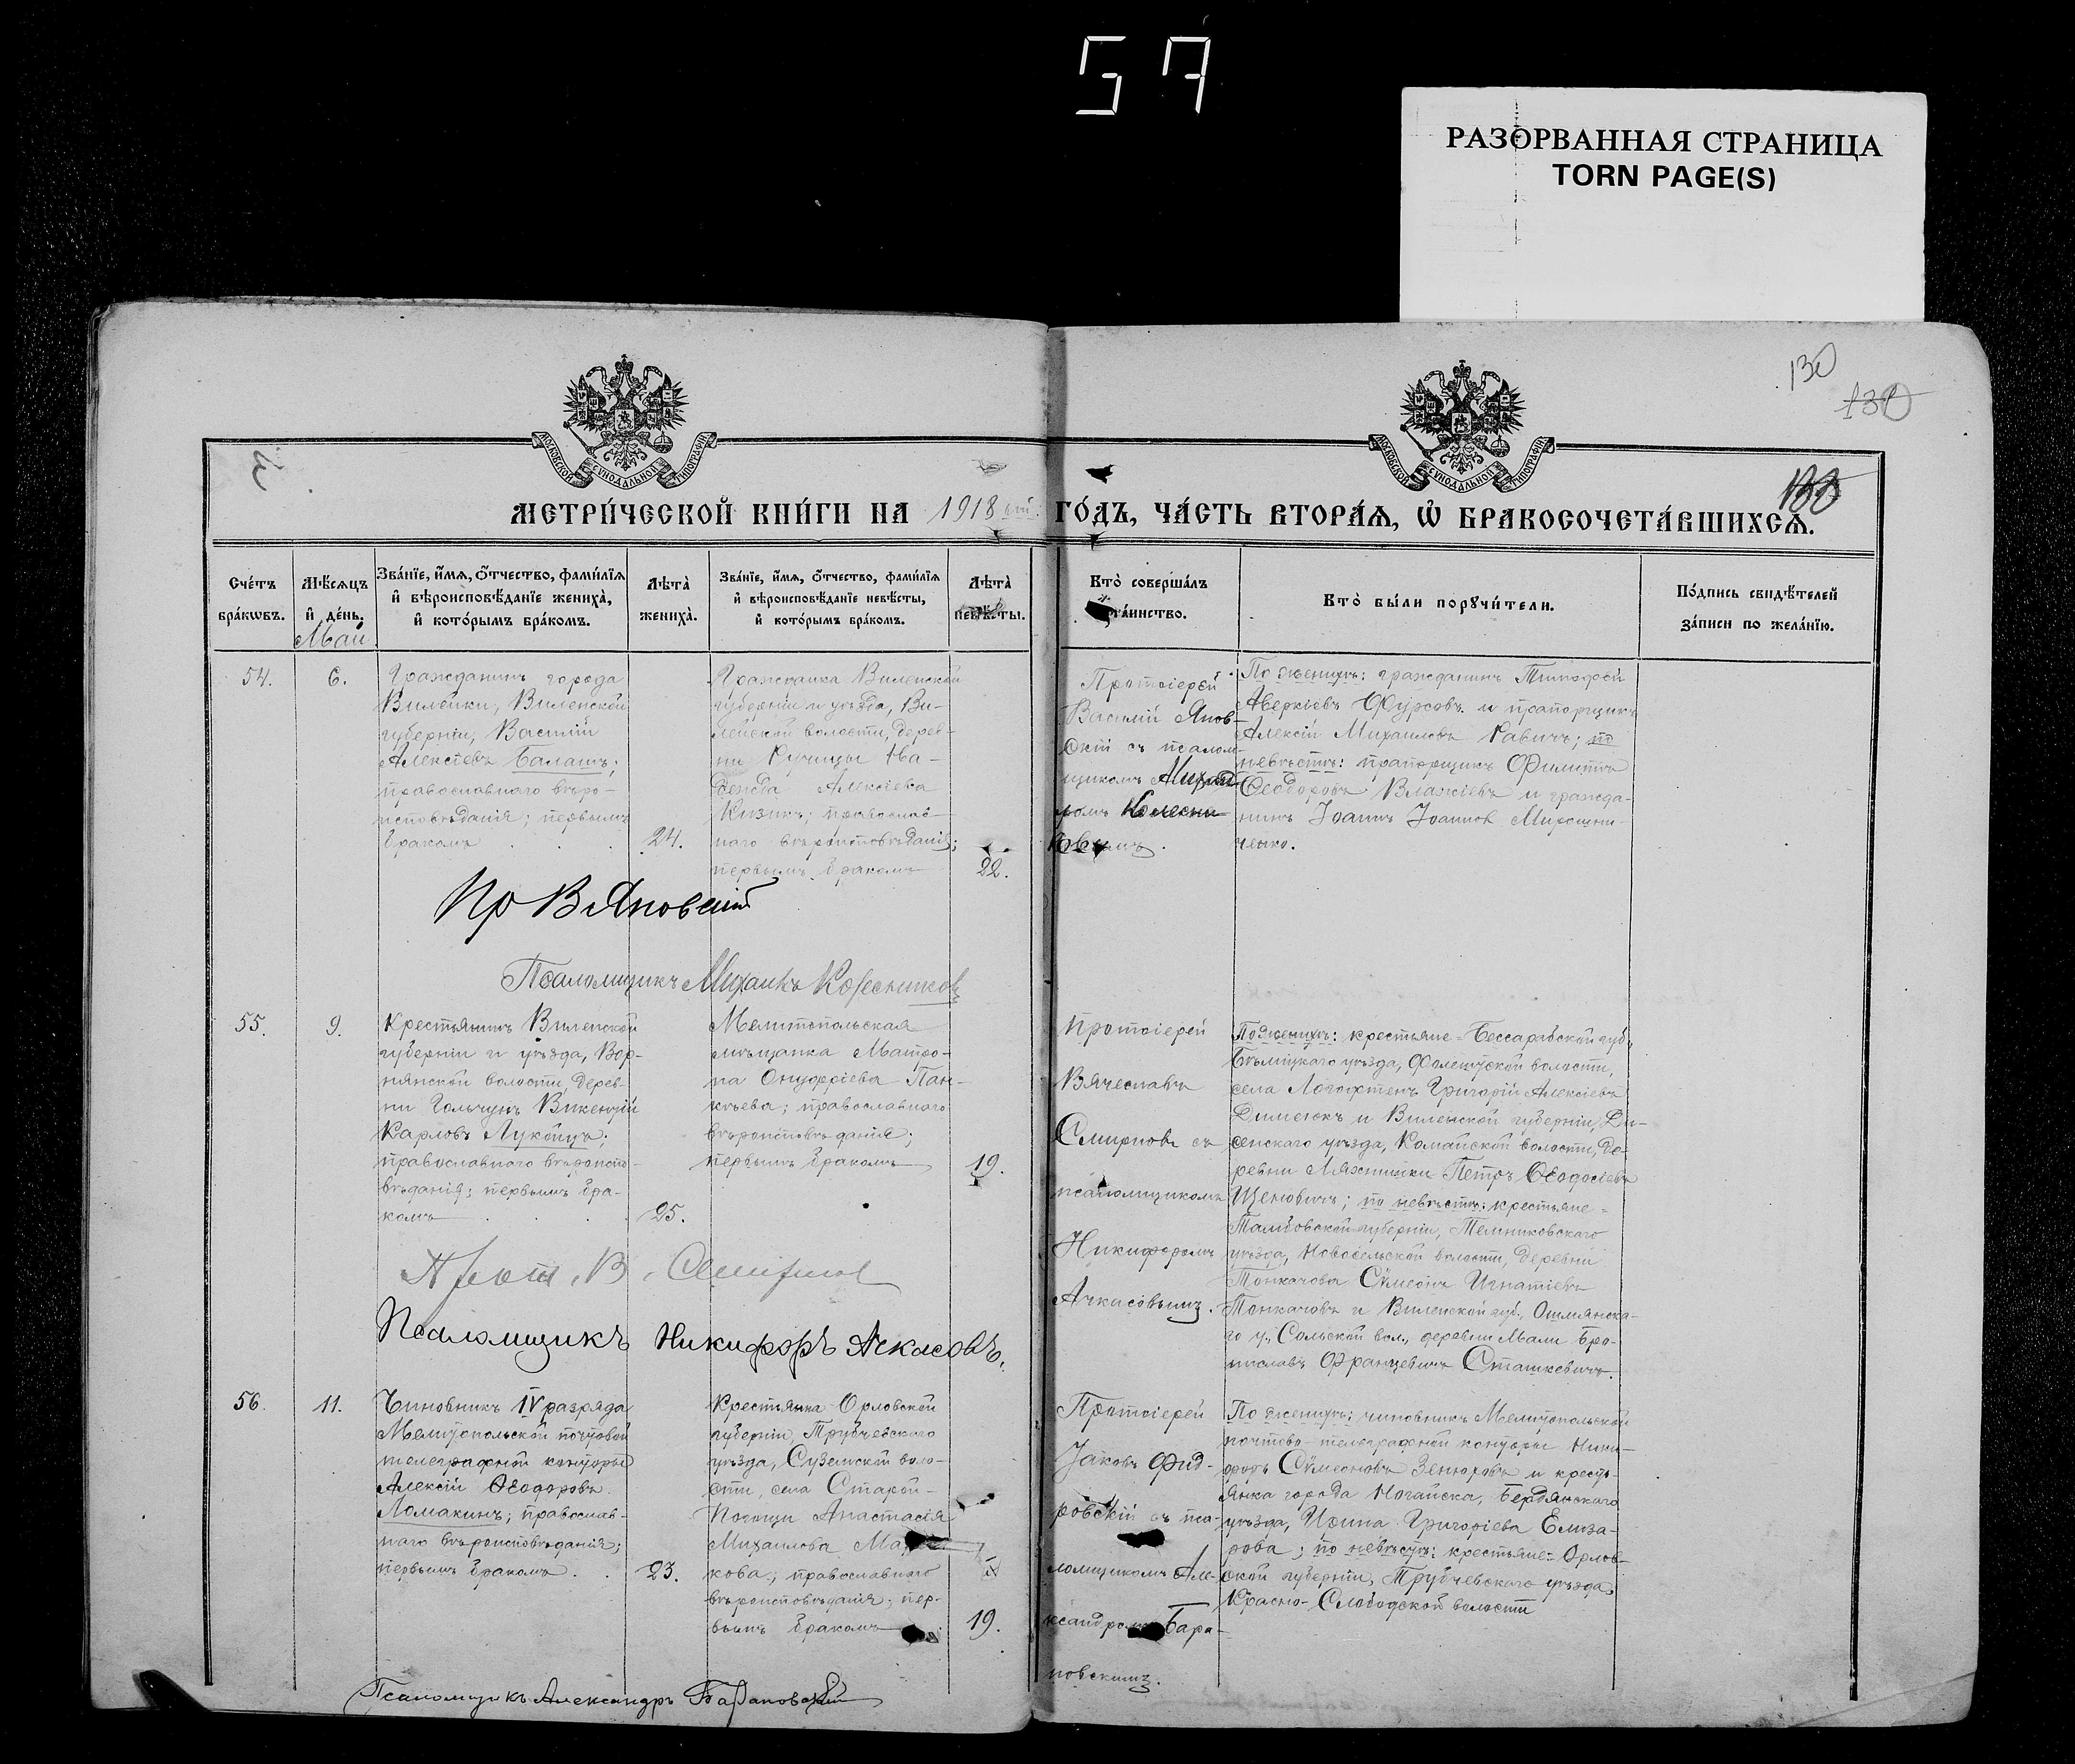 57
РАЗОРВАННАЯ СТРАНИЦА
TORN PAGE(S)
130
130
130
МОСКОВСКОЙ СУНОДАЛЬНОЙ ТИПОГРАФІИ
МОСКОВСКОЙ СУНОДАЛЬНОЙ ТИПОГРАФІИ
МЕТРИ́ЧЕСКОЙ КНИ́ГИ НА 1918 ый. ГО́ДЪ, ЧА́СТЬ ВТОРА́Ѧ, Ѡ҆ БРАКОСОЧЕТА́ВШИХСѦ.
Сче́тъ бра́кѡвъ.
Мѣ́сѧцъ и҆ де́нь.
Май
Зва́нїе, и҆́мѧ, ѻ҆́тчество, фами́лїѧ
и҆ вѣроисповѣ́данїе жениха̀,
и҆ кото́рымъ бра́комъ.
Лѣта̀ жениха̀.
Зва́нїе, и҆́мѧ, ѻ҆́тчество, фами́лїѧ
и҆ вѣроисповѣ́данїе невѣ́сты,
и҆ кото́рымъ бра́комъ.
Лѣта̀ невѣ́сты.
Кто̀ соверша́лъ
та́инство.
Кто̀ бы́ли порꙋчи́тели.
По́дпись свидѣ́телей
за́писи по жела́нїю.
54.
6.
Гражданинъ города
Вилейки, Виленской
губерніи, Василій
Алексіевъ Балашъ;
православнаго вѣро-
исповѣданія; первымъ
бракомъ
24.
Гражданка Виленской
губерніи и уѣзда, Ви-
лейской волости, дерев-
ни Ручицы На-
дежда Алексіева
Кизикъ; православ-
наго вѣроисповѣданія;
первымъ бракомъ
22.
Протоіерей
Василій Янов-
скій съ псалом-
щикомъ Михаи-
ломъ Колесни-
ковымъ.
По женихѣ: гражданинъ Тимофей
Аверкіевъ Фурсовъ и прапорщикъ
Алексій Михаиловъ Равичъ; по
невѣстѣ: прапорщикъ Филиппъ
Ѳеодоровъ Влажіевъ и гражда-
нинъ Іоаннъ Іоанновъ Мирошни-
ченко.
Пр В Яновскій
Псаломщикъ Михаилъ Колесниковъ
55.
9.
Крестьянинъ Виленской
губерніи и уѣзда, Вор-
нянской волости, дерев-
ни Гольчунъ Викентій
Карловъ Лукоицъ;
православнаго вѣроиспо-
вѣданія; первымъ бра-
комъ
25.
Мелитопольская
мѣщанка Матро-
на Онуфріева Пан-
кѣева; православнаго
вѣроисповѣданія;
первымъ бракомъ
19.
Протоіерей
Вячеславъ
Смирновъ съ
псаломщикомъ
Никифоромъ
Ачкасовымъ.
По женихѣ: крестьяне - Бессарабской губ.,
Бѣльцкаго уѣзда, Фалештской волости,
села Логофтенъ Григорій Алексіевъ
Димеюкъ и Виленской губерніи, Ди-
сенскаго уѣзда, Комайской волости, де-
ревни Мяхнишки Петръ Ѳеодосіевъ
Щеновичъ; по невѣстѣ: крестьяне -
Тамбовской губерніи, Темниковскаго
уѣзда, Новосельской волости, деревни
Тонкачова Сѵмеонъ Игнатіевъ
Тонкачовъ и Виленской губ., Ошмянска-
го у., Сольской вол., деревни Мали Бро-
ниславъ Францевичъ Сташкевичъ.
Прот. В. Смирнов
Псаломщикъ Никифоръ Ачкасовъ.
56.
11.
Чиновникъ IV разряда
Мелитопольской почтовой
телеграфной конторы
Алексій Ѳеодоровъ
Ломакинъ; православ-
наго вѣроисповѣданія;
первымъ бракомъ
23.
Крестьянка Орловской
губерніи, Трубчевскаго
уѣзда, Суземской воло-
сти, села Старой-
Погощи Анастасія
Михаилова
кова; православнаго
вѣроисповѣданія; пер-
вымъ бракомъ
19.
Протоіерей
Іаковъ
ровскій съ пса-
ломщикомъ Але-
ксандромъ Бара-
новскимъ.
По женихѣ: чиновникъ Мелитопольской
почтово-телеграфной конторы Ники-
форъ Сѵмеоновъ Зенюровъ и кресть-
янка города Ногайска, Бердянскаго
уѣзда, Ирина Григоріева Елиза-
рова; по невѣстѣ: крестьяне: Орлов-
ской губерніи, Трубчевскаго уѣзда,
Красно-Слободской волости
Псаломщикъ Александръ Барановскій